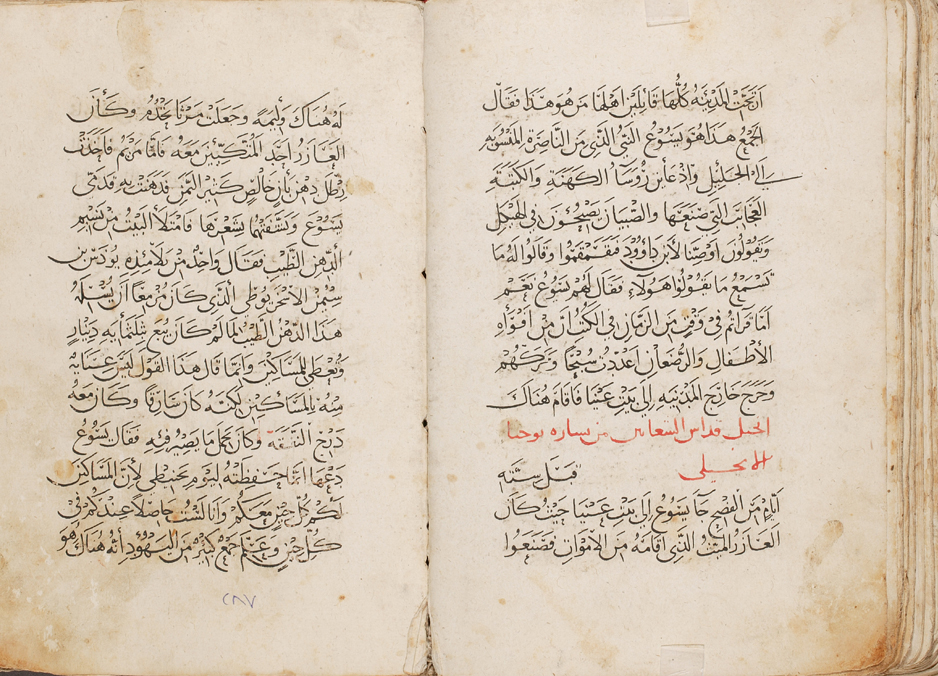 ارتجت المدينه كلها قايلين اهلها من هو هذا فقال
الجمع هذا هو يسوع النبي الذي من الناصره المنسوبه
الى الجليل واذ عاين روسا الكهنة والكتبة
العجايب التي صنعها والصبيان يصيحون في الهيكل
ويقولون اوصنا لابن داوود فقمقموا وقالوا له ما
تسمع ما يقولوا هولاء فقال لهم يسوع نعم
اما قراتم في وقت من الزمان في الكتب ان من افواه
الأطفال والرضعان اعددت سبحا وتركهم
وخرج خارج المدينه الى بيت عنيا فاقام هناك
انجيل قداس الشعانين من بشاره يوحنا
الانجيلي قبل ستة
ايام من الفصح جا يسوع الى بيت عنيا حيث كان
العازر الميت الذي اقامه من الاموات فصنعوا
له هناك وليمه وجعلت مرثا تخدم وكان
العازر احد المتكيين معه فاما مريم فاخذت
رطل دهن ناردين خالص كثير الثمن فدهنت به قدمي
يسوع ونشفتهما بشعرها فامتلا البيت من نسيم
الدهن الطيب فقال واحد من تلامذه يودس بن
سمن الاسخريوطي الذي كان مزمعا ان يسلمه
هذا الدهن الطيب لما لم كان يبع بثلثمايه دينار
ويعطى للمساكين وانما قال هذا القول ليس عنايه
منه بالمساكين لكنه كان سارقا وكان معه
درج النفقه وكان يحمل ما يصير فيه فقال يسوع
دعها انما حفظته ليوم تحنيطي لأن المساكين
لكم كل حين معكم وانا لست حاصلا عندكم في
كل حين وعلم جمع كثير من اليهود انه هناك هو
٢٨٧